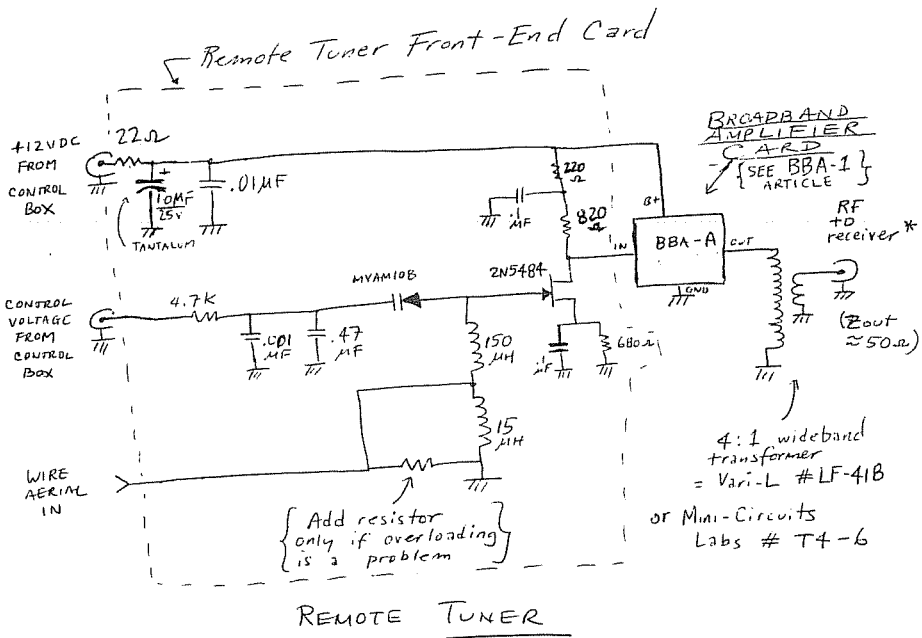 Remote Tuner Front-End Card
+12VDC
FROM
CONTROL
BOX
22Ω
+
10MF
25V
TANTALUM
.01μF
220
Ω
.1
μF
820
Ω
B+
BROADBAND
AMPLIFIER
CARD
{SEE BBA-1
ARTICLE}
RF
to
receiver*
IN
BBA-A
OUT
GND
(Zout
≈50Ω)
CONTROL
VOLTAGE
FROM
CONTROL
BOX
4.7K
MVAM108
2N5484
.001
μF
.47
μF
150
μH
.1
μF
680Ω
15
μH
WIRE
AERIAL
IN
{Add resistor
only if overloading
is a problem}
4:1 wideband
transformer
= Vari-L #LF-41B
or Mini-Circuits
Labs # T4-6
REMOTE TUNER